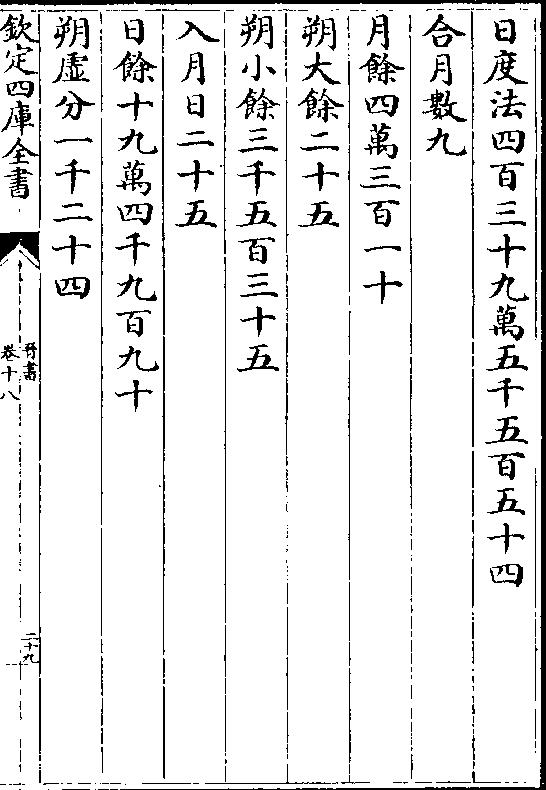 日度法四百三十九萬五千五百五十四
合月數九
月餘四萬三百一十
朔大餘二十五
朔小餘三千五百三十五
入月日二十五
日餘十九萬四千九百九十
朔虛分一千二十四
欽定四庫全書
晉書
卷十八
二十九